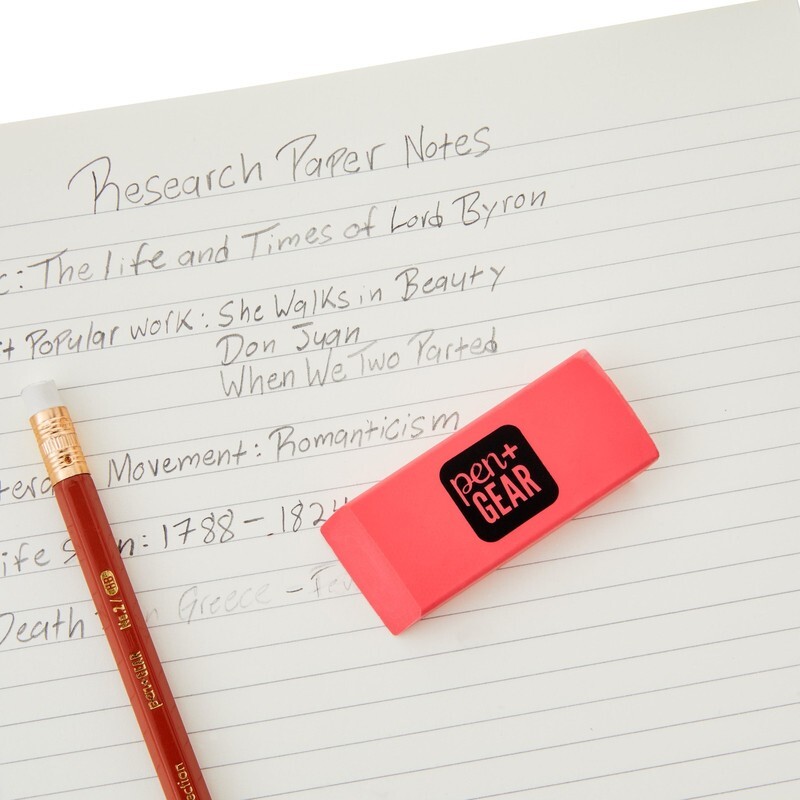 Research Paper Notes
c: The life and Times of Lord Byron
t Popular work: She Walks in Beauty
Don Juan
When We Two Parted
tera Movement: Romanticism
ife S n: 1788 - 182
Death n Greece - Fev
pen+
GEAR
pen+GEAR No.2/HB
ection